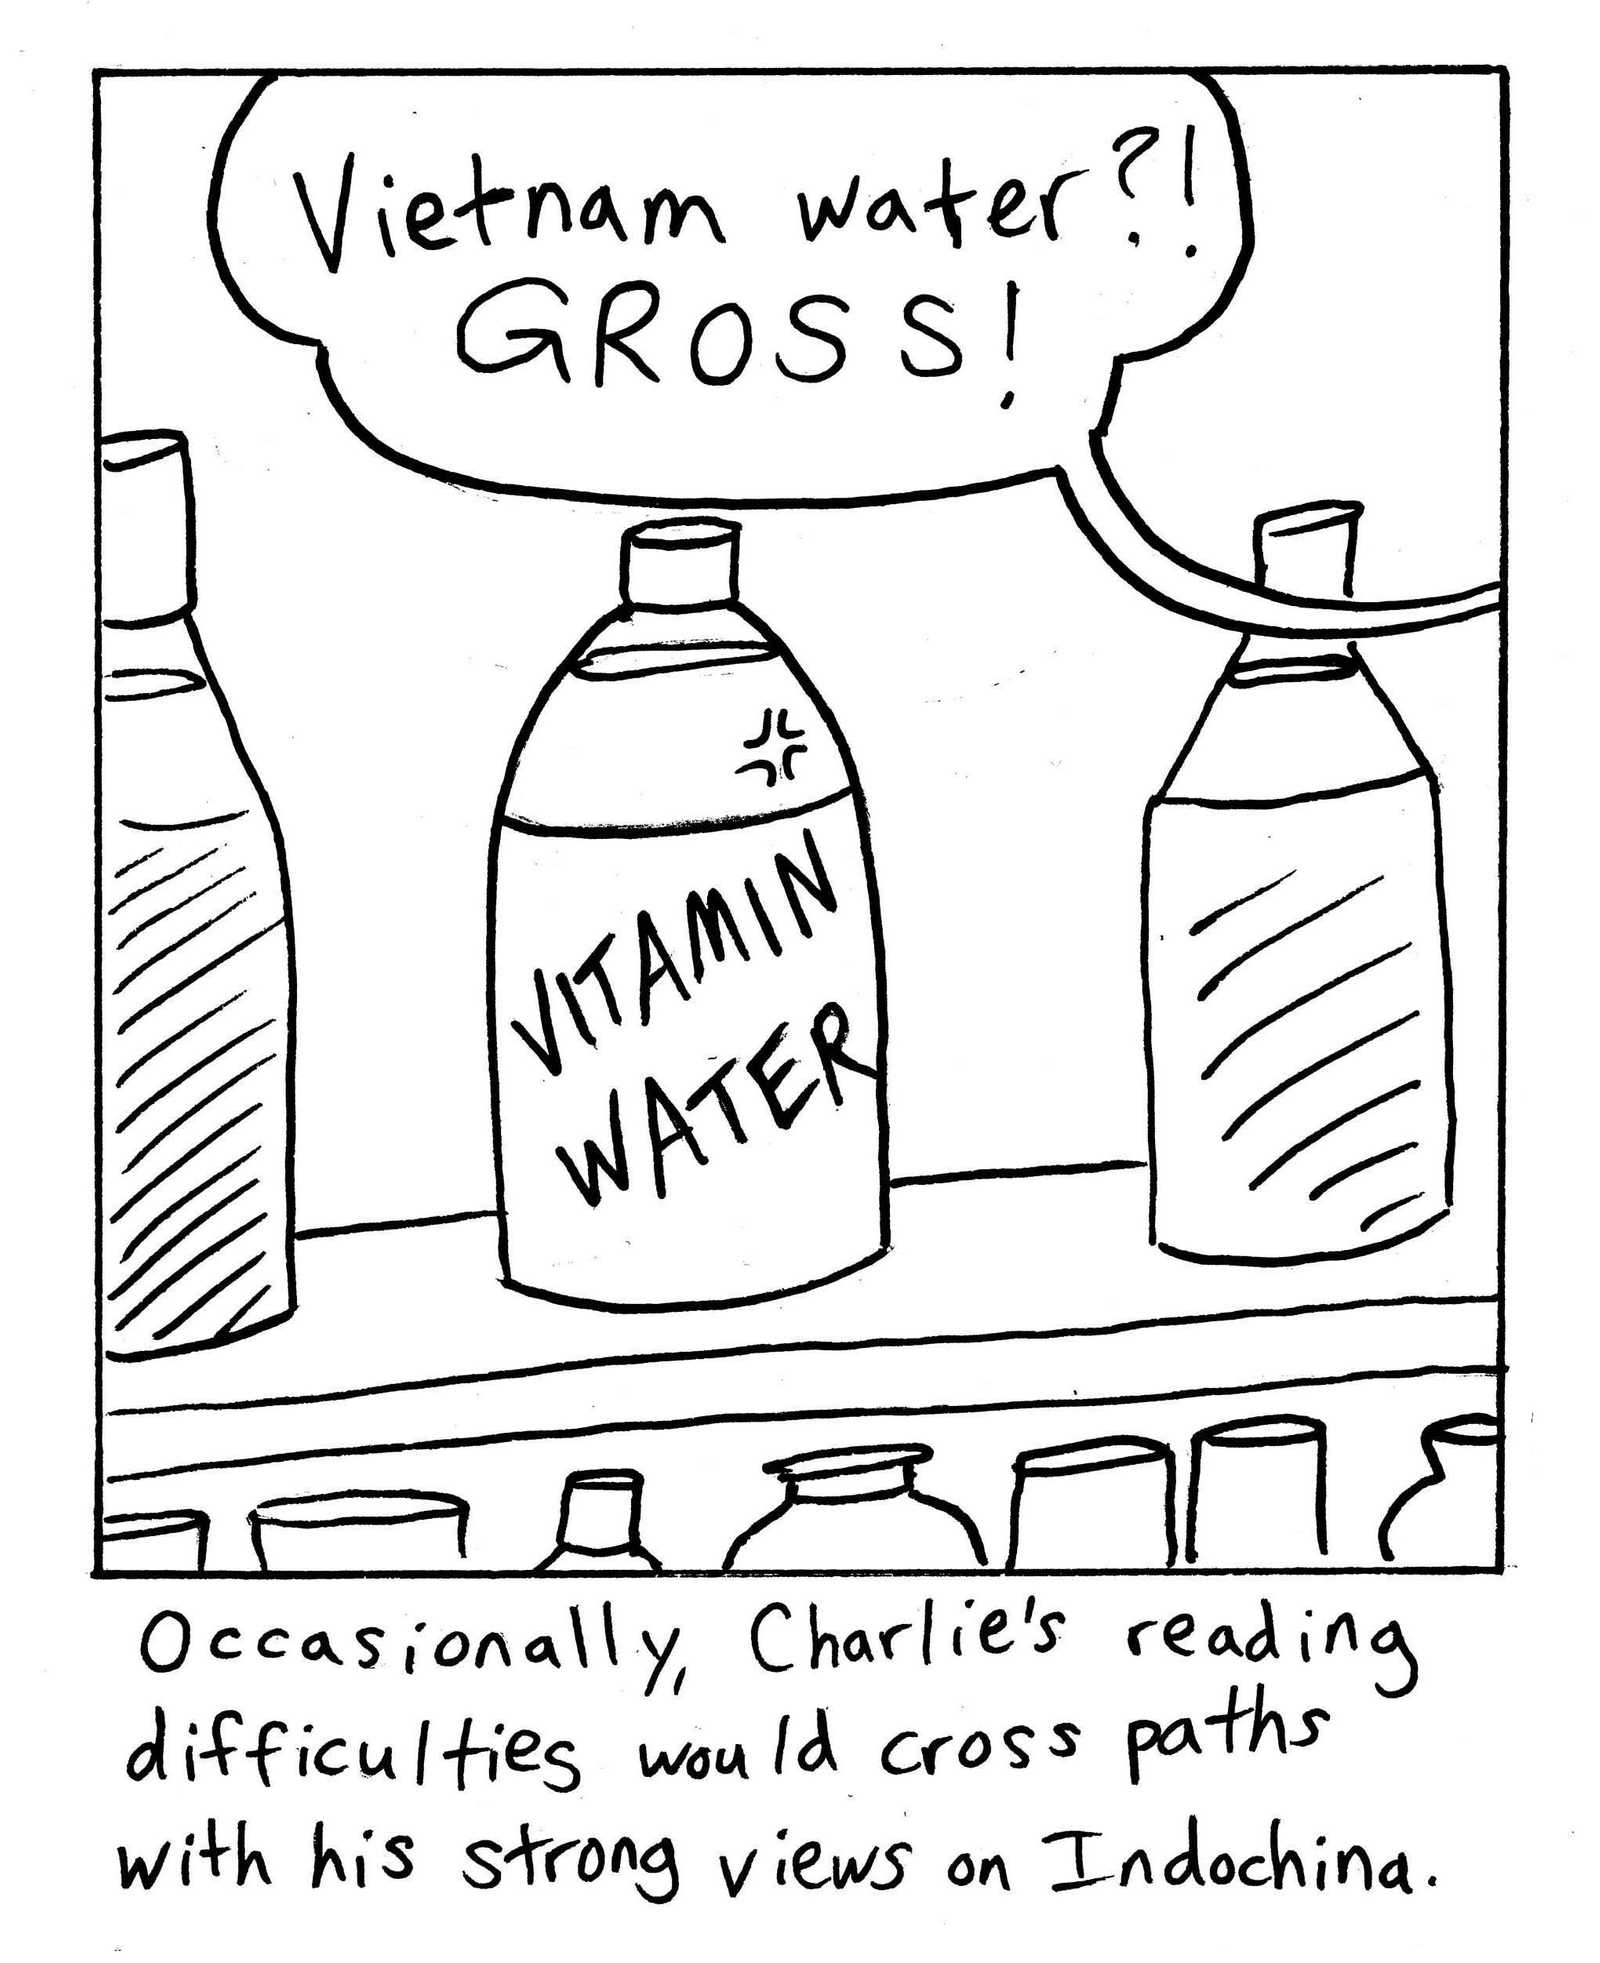 Vietnam water?!
GROSS!
VITAMIN
WATER
Occasionally, Charlie's reading
difficulties would cross paths
with his strong views on Indochina.